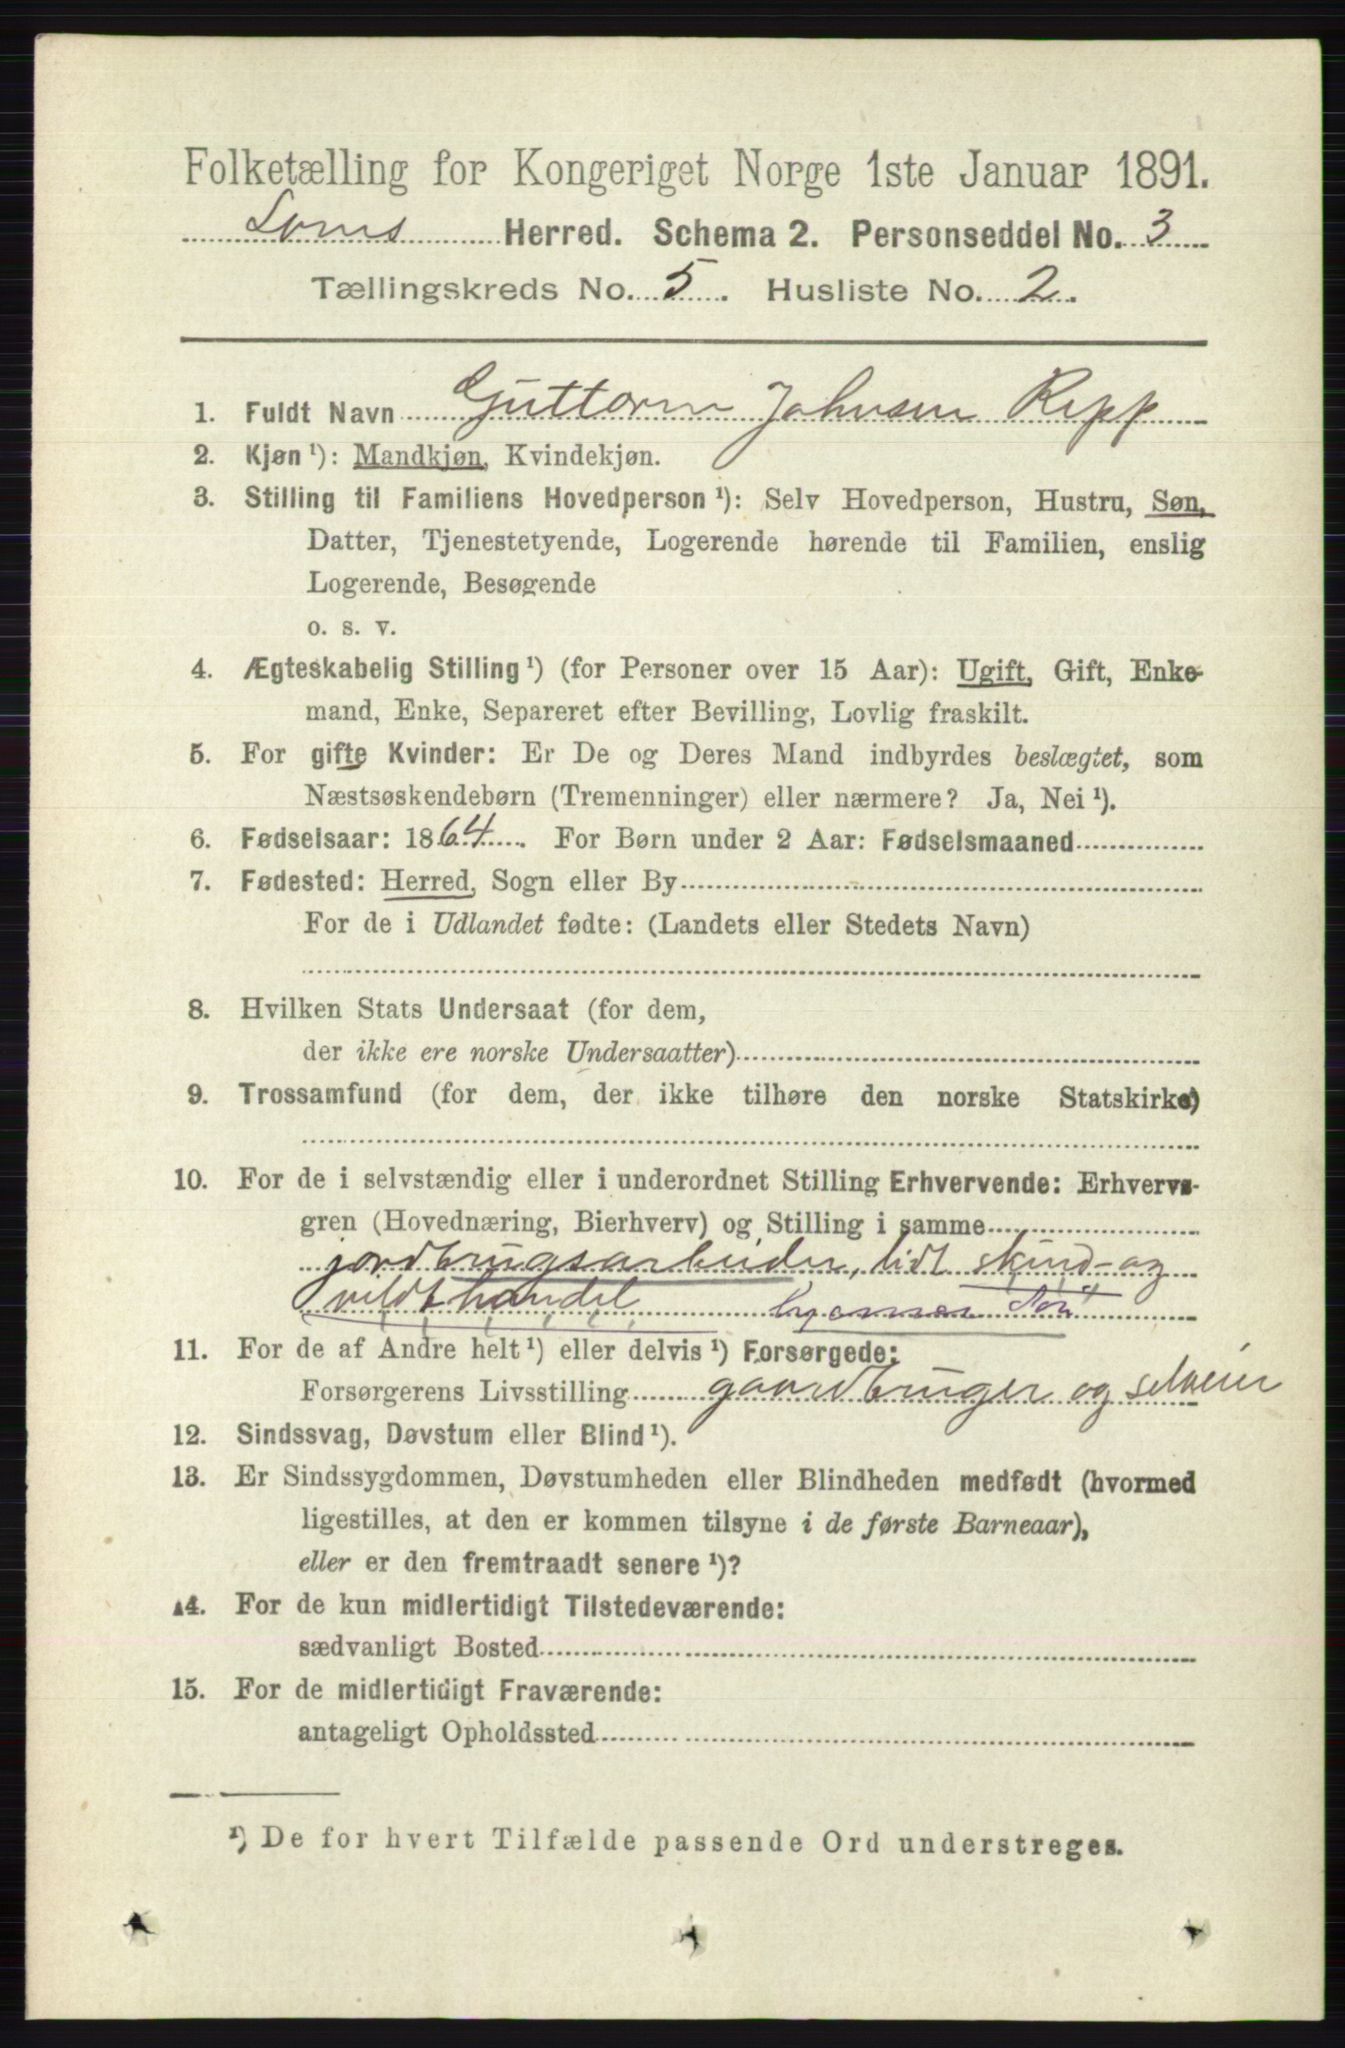 Folketælling for Kongeriget Norge 1ste Januar 1891.
Loms Herred. Schema 2. Personseddel No. 3
Tællingskreds No. 5. Husliste No. 2.
1. Fuldt Navn Guttorm Johnsen Repp
2. Kjøn ¹): Mandkjøn, Kvindekjøn.
3. Stilling til Familiens Hovedperson ¹): Selv Hovedperson, Hustru, Søn,
Datter, Tjenestetyende, Logerende hørende til Familien, enslig
Logerende, Besøgende
o. s. v.
4. Ægteskabelig Stilling ¹) (for Personer over 15 Aar): Ugift, Gift, Enke-
mand, Enke, Separeret efter Bevilling, Lovlig fraskilt.
5. For gifte Kvinder: Er De og Deres Mand indbyrdes beslægtet, som
Næstsøskendebørn (Tremenninger) eller nærmere? Ja, Nei ¹).
6. Fødselsaar: 1864. For Børn under 2 Aar: Fødselsmaaned
7. Fødested: Herred, Sogn eller By
For de i Udlandet fødte: (Landets eller Stedets Navn)
8. Hvilken Stats Undersaat (for dem,
der ikke ere norske Undersaatter)
9. Trossamfund (for dem, der ikke tilhøre den norske Statskirke)
10. For de i selvstændig eller i underordnet Stilling Erhvervende: Erhvervs-
gren (Hovednæring, Bierhverv) og Stilling i samme
jordbrugsarbeider, lidt skind- og
vildthandel Søn
11. For de af Andre helt ¹) eller delvis ¹) Forsørgede:
Forsørgerens Livsstilling gaardbruger og selveier
12. Sindssvag, Døvstum eller Blind ¹).
13. Er Sindssygdommen, Døvstumheden eller Blindheden medfødt (hvormed
ligestilles, at den er kommen tilsyne i de første Barneaar),
eller er den fremtraadt senere ¹)?
14. For de kun midlertidigt Tilstedeværende:
sædvanligt Bosted
15. For de midlertidigt Fraværende:
antageligt Opholdssted
¹) De for hvert Tilfælde passende Ord understreges.